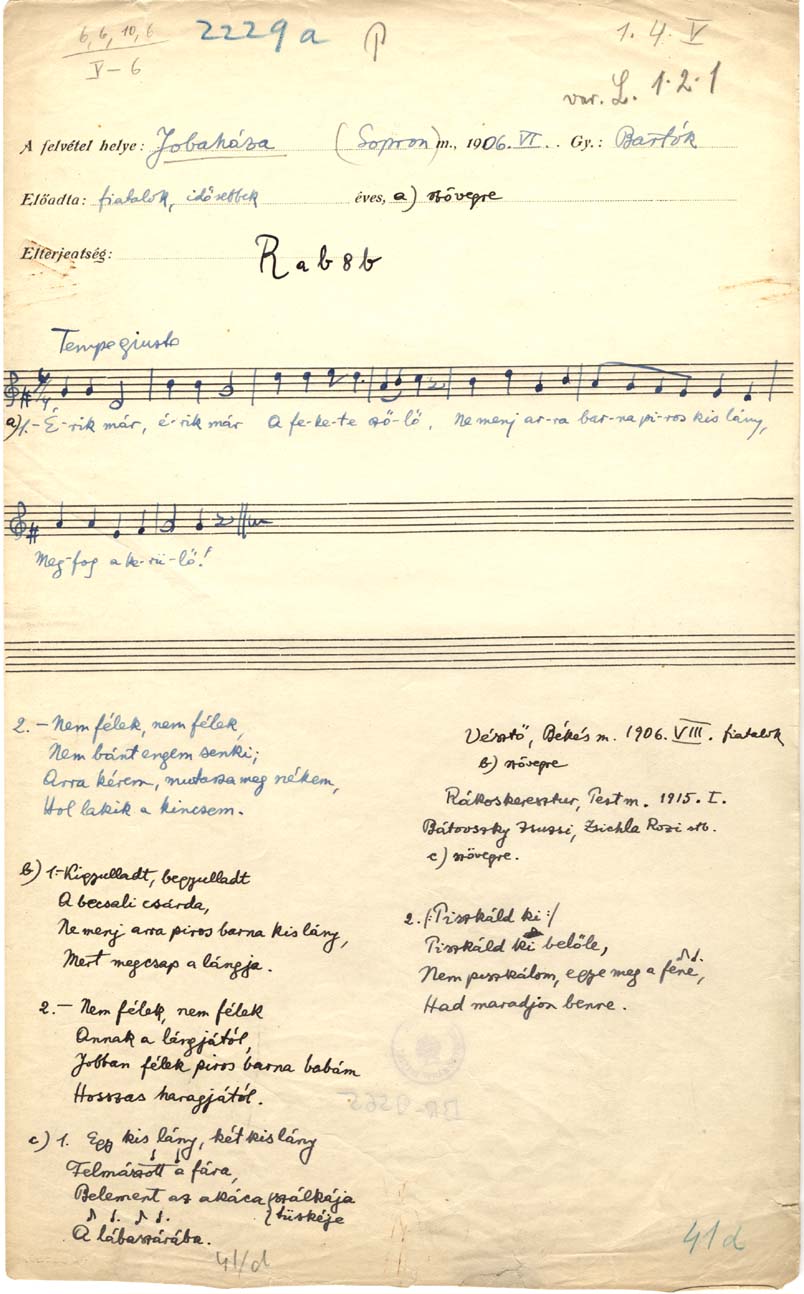 6, 6, 10, 6
V – 6
2229 a
1. 4. V
var. L. 1·2·1
A felvétel helye: Jobaháza (Sopron) m., 1906. VI. Gy.: Bartók
Előadta: fiatalok, idősebbek éves, a) szövegre
Elterjeatség:
R a b 8 b
Tempo giusto
a) 1.- É-rik már, é-rik már A fe-ke-te sző-lő, Ne menj ar-ra bar-na pi-ros kis lány,
Meg-fog a ke-rü-lő!
2. – Nem félek, nem félek,
Nem bánt engem senki;
Arra kérem, mutassa meg nékem,
Hol lakik a kincsem.
b) 1.- Kigyulladt, begyulladt
A becsali csárda,
Ne menj arra piros barna kis lány,
Mert megcsap a lángja.
2. – Nem félek, nem félek
Annak a lángjától,
Jobban félek piros barna babám
Hosszas haragjától.
c) 1. Egy kis lány, két kis lány
Felmászott a fára,
Belement az akáca szálkája
tüskéje
A lábaszárába.
41/d
Vésztő, Békés m. 1906. VIII. fiatalok
b) szövegre
Rákoskeresztur, Pest m. 1915. I.
Bátovszky Zsuzsi, Zsichla Rozi stb.
c) szövegre.
2. /: Piszkáld ki :/
Piszkáld ki belőle,
Nem piszkálom, egye meg a fene,
Had maradjon benne.
BR-9565
41d